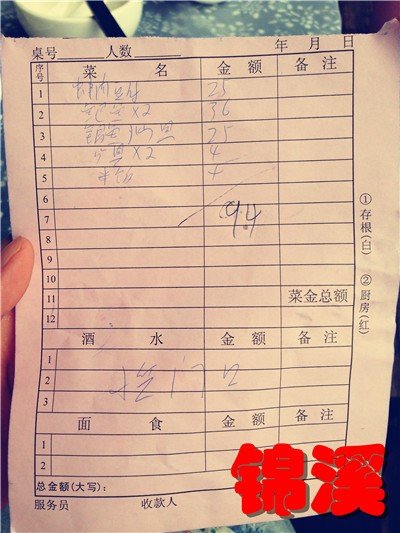 桌号 人数 年 月 日
序号 菜 名 金 额 备 注
1 25
2 ×2 36
3 25
4 ×2 4
5 米饭 4
6
7 94
8
9
10
11 菜金总额
12
酒 水 金 额 备 注
1
2
3
面 食 金 额 备 注
1
2
总金额(大写):
服务员 收款人
①存根(白) ②厨房(红)
锦溪